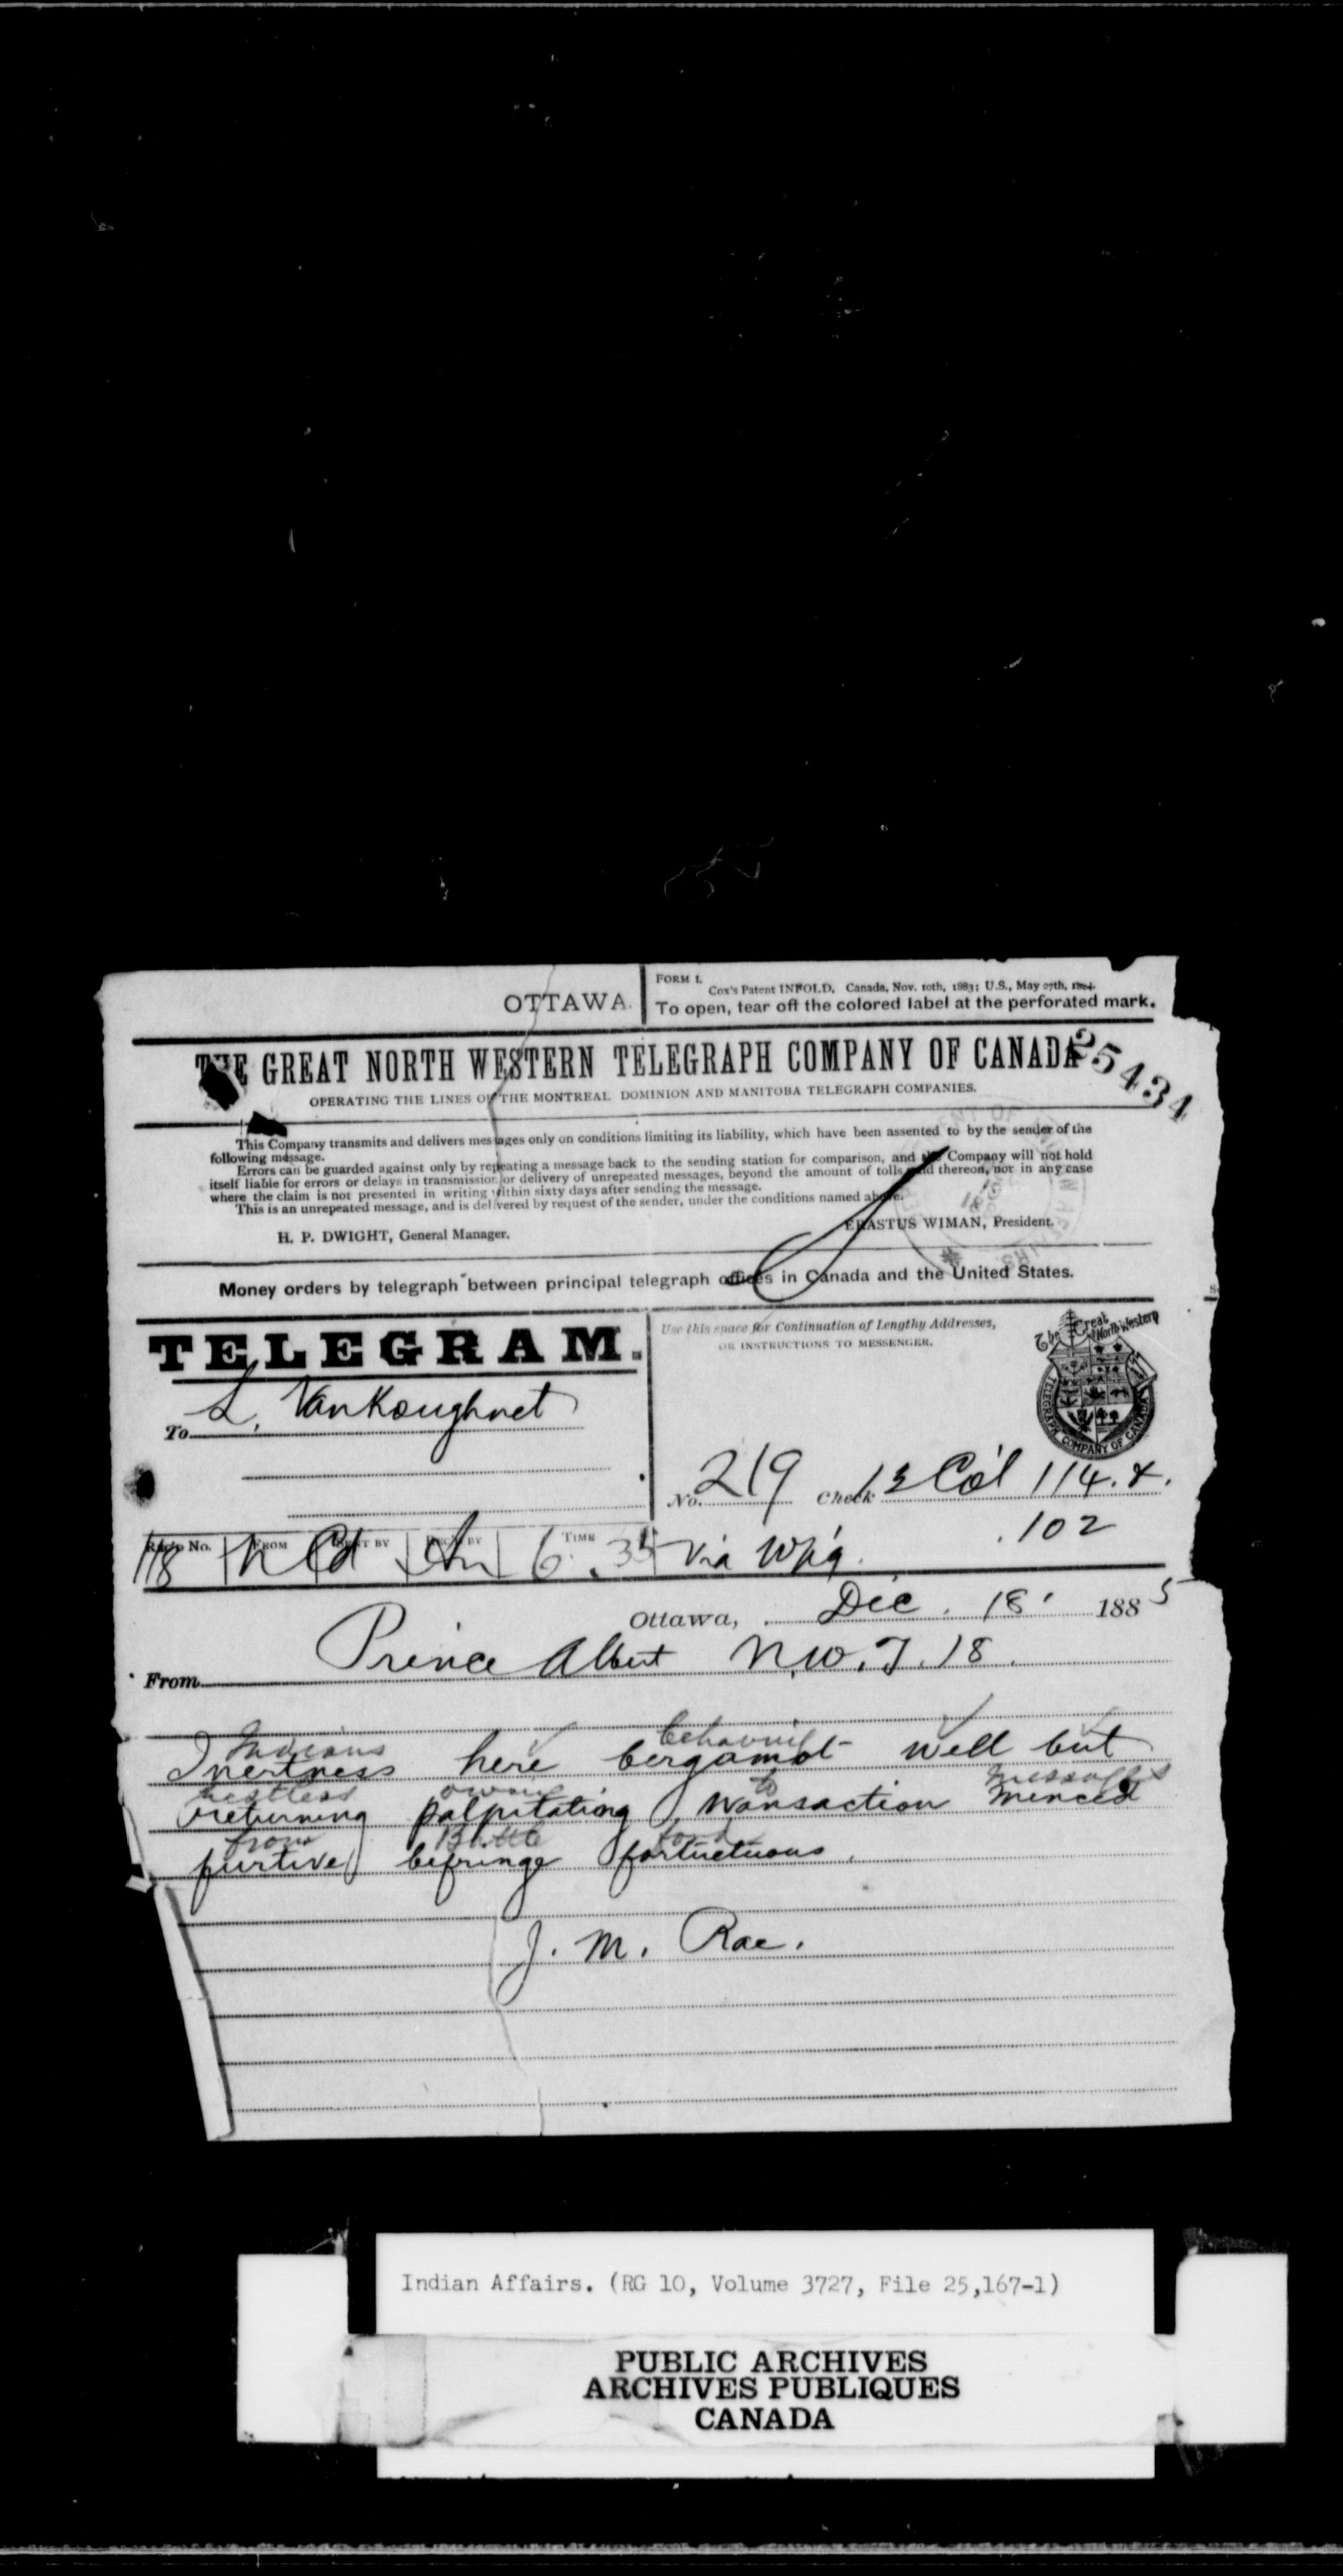 OTTAWA.
FORM 1.
Cox's Patent INFOLD, Canada, Nov. 10th, 1883; U.S., May 27th, 1884.
To open, tear off the colored label at the perforated mark.
THE GREAT NORTH WESTERN TELEGRAPH COMPANY OF CANADA
25434
OPERATING THE LINES OF THE MONTREAL DOMINION AND MANITOBA TELEGRAPH COMPANIES.
This Company transmits and delivers messages only on conditions limiting its liability, which have been assented to by the sender of the
following message.
Errors can be guarded against only by repeating a message back to the sending station for comparison, and the Company will not hold
itself liable for errors or delays in transmission or delivery of unrepeated messages, beyond the amount of tolls paid thereon, nor in any case
where the claim is not presented in writing within sixty days after sending the message.
This is an unrepeated message, and is delivered by request of the sender, under the conditions named above.
ERASTUS WIMAN, President.
H. P. DWIGHT, General Manager.
Money orders by telegraph between principal telegraph offices in Canada and the United States.
TELEGRAM.
Use this space for Continuation of Lengthy Addresses,
OR INSTRUCTIONS TO MESSENGER.
The Great North Western
TELEGRAPH COMPANY OF CANADA
To L. VanKoughnet
No. 219 Check 13 Col 114.
.102
No. FROM SENT BY REC'D BY TIME
118 6.35 Via Wpg.
Ottawa, Dec. 18 1885
From Prince Albert N.W.T. 18.
Indians behaving
Inertness here bergamot well but
restless owing to messages
returning palpitating transaction minced
from Battle ford
furtive befringe fortuetuous.
J. M. Rae.
Indian Affairs. (RG 10, Volume 3727, File 25,167-1)
PUBLIC ARCHIVES
ARCHIVES PUBLIQUES
CANADA